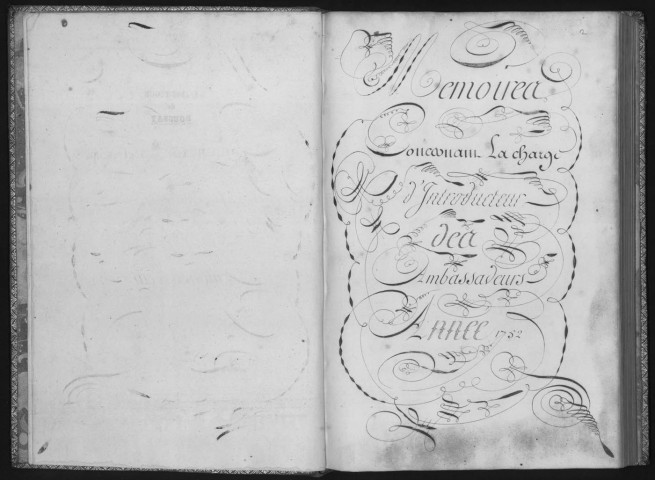 Memoires
Concernant La charge
d'Introducteur
des
Ambassadeurs
Année 1752